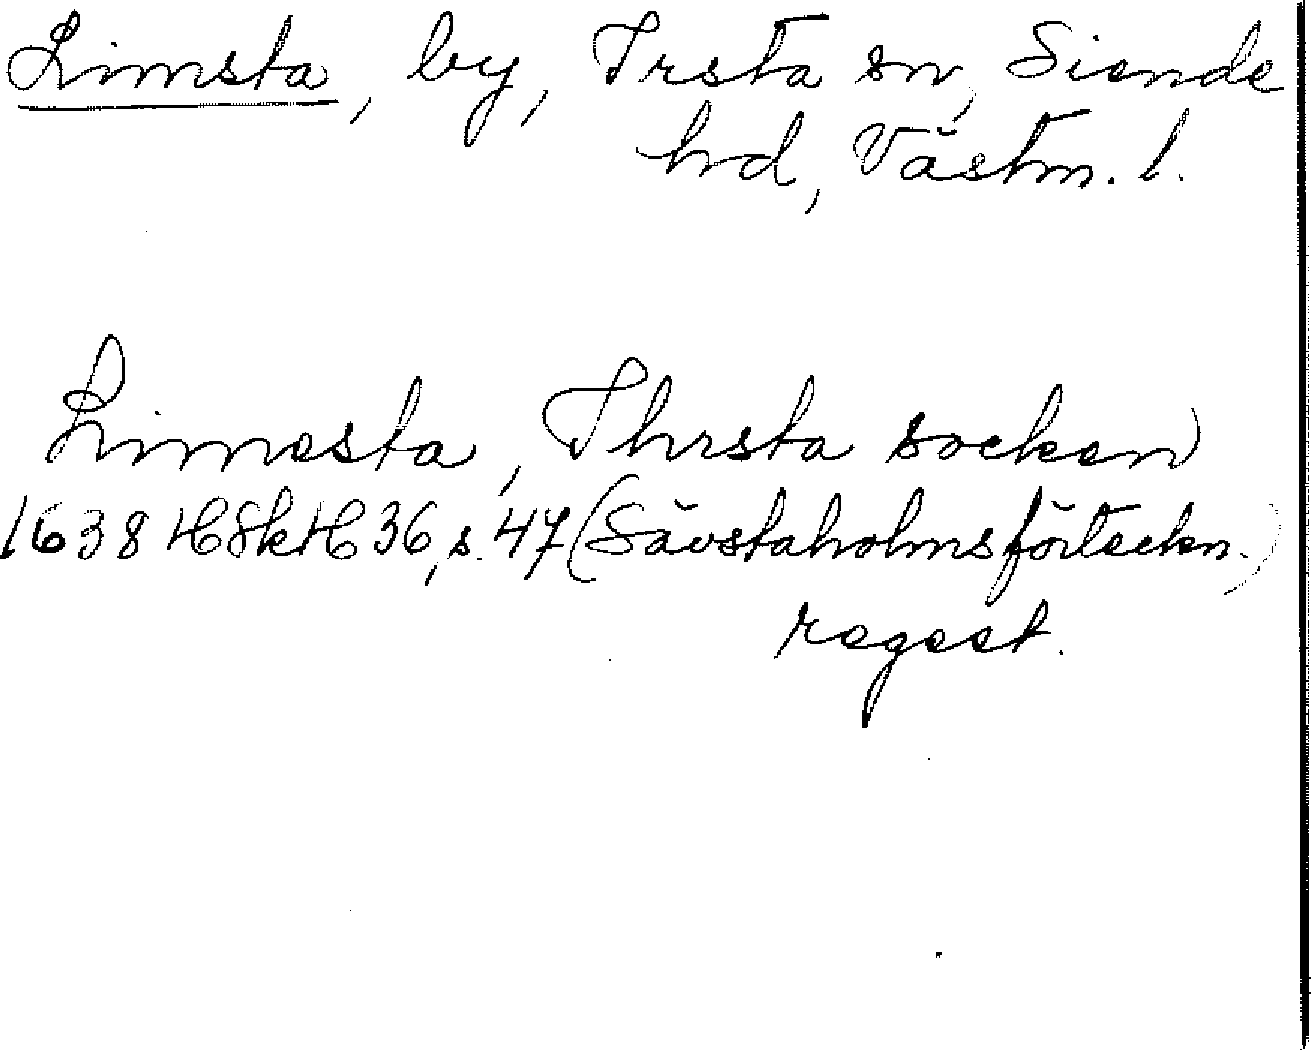 Limsta, by, Irsta sn, Siende
hrd, Västm. l.
Limesta, Thrsta socken
1638 HSkH 36, s. 47 (Sävstaholmsförteckn.)
regest.